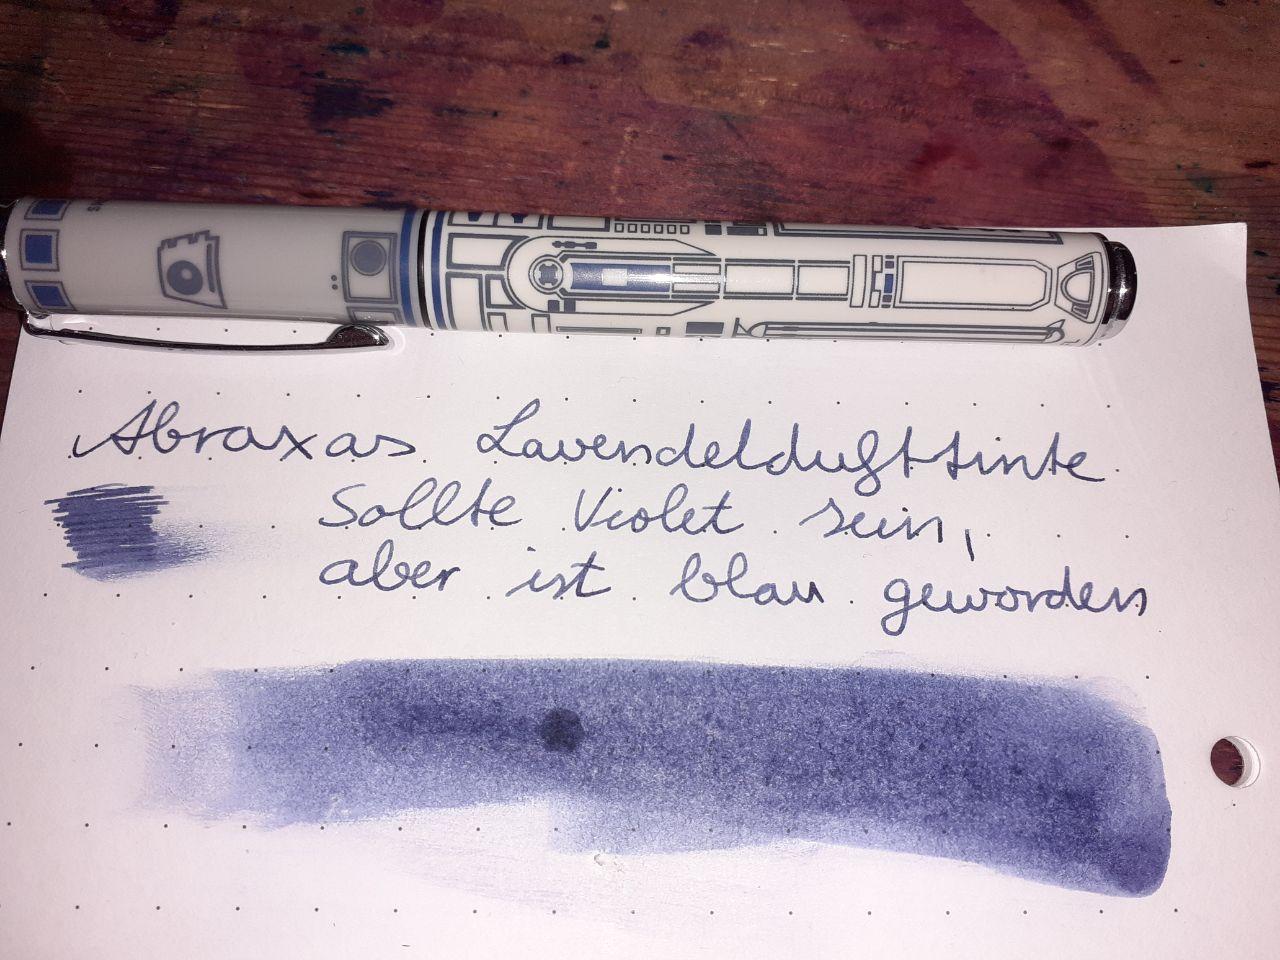 Abraxas Lavendeldufttinte
Sollte Violet sein,
aber ist blau geworden